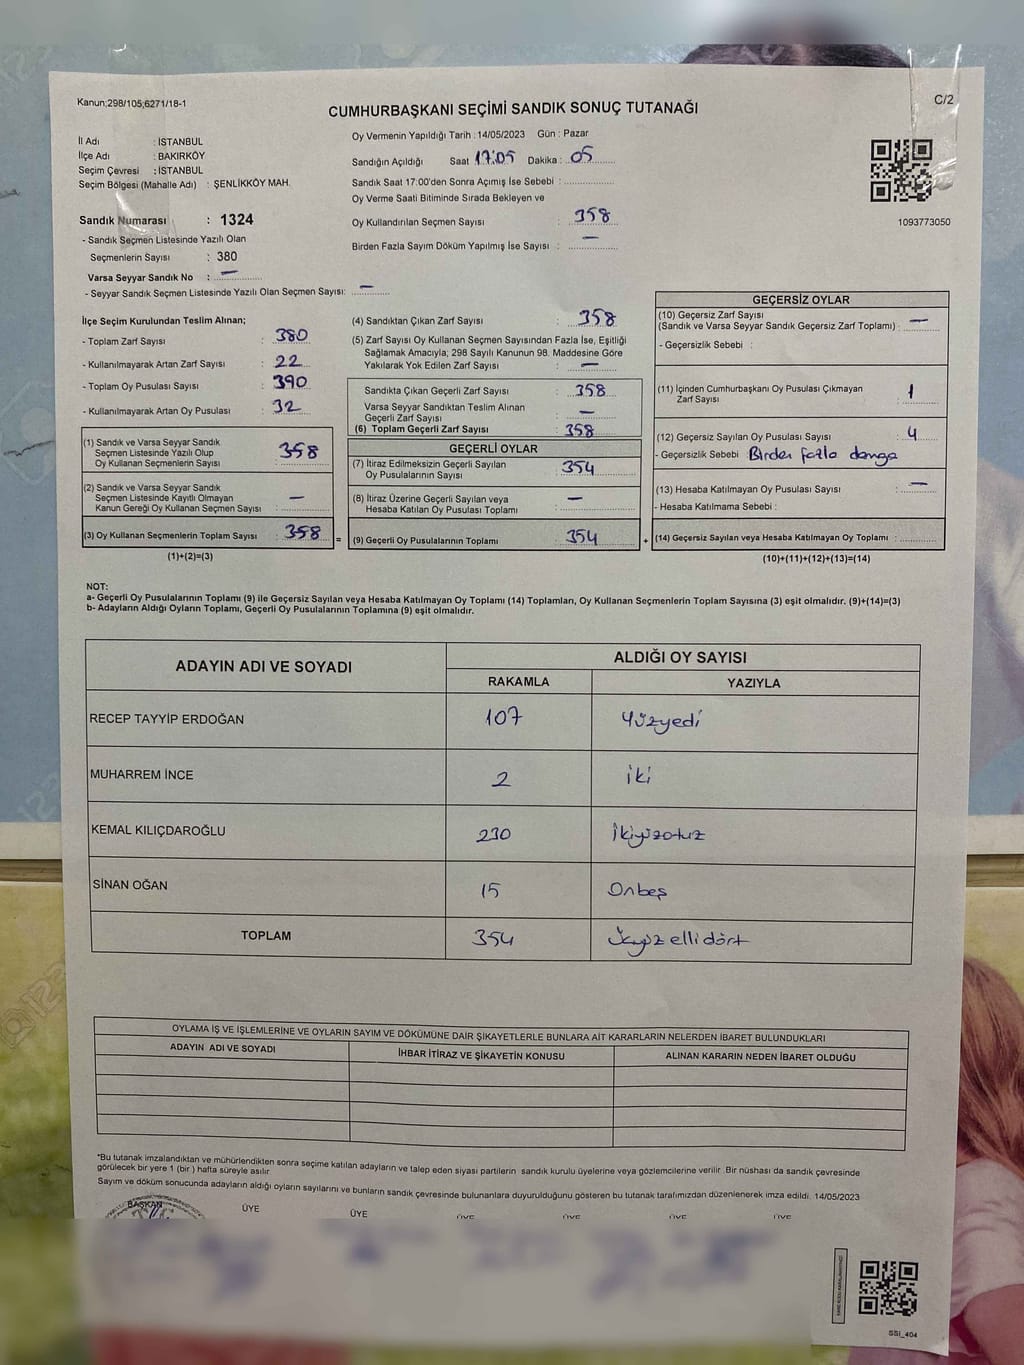 Kanun;298/105;6271/18-1
C/2
CUMHURBAŞKANI SEÇİMİ SANDIK SONUÇ TUTANAĞI
İl Adı : İSTANBUL
İlçe Adı : BAKIRKÖY
Seçim Çevresi : İSTANBUL
Seçim Bölgesi (Mahalle Adı) : ŞENLİKKÖY MAH.
Sandık Numarası : 1324
- Sandık Seçmen Listesinde Yazılı Olan
Seçmenlerin Sayısı : 380
Varsa Seyyar Sandık No : —
- Seyyar Sandık Seçmen Listesinde Yazılı Olan Seçmen Sayısı: —
Oy Vermenin Yapıldığı Tarih : 14/05/2023 Gün : Pazar
Sandığın Açıldığı Saat 17:05 Dakika : 05
Sandık Saat 17:00'den Sonra Açımış İse Sebebi :
Oy Verme Saati Bitiminde Sırada Bekleyen ve
Oy Kullandırılan Seçmen Sayısı : 358
Birden Fazla Sayım Döküm Yapılmış İse Sayısı : —
1093773050
İlçe Seçim Kurulundan Teslim Alınan;
- Toplam Zarf Sayısı : 380
- Kullanılmayarak Artan Zarf Sayısı : 22
- Toplam Oy Pusulası Sayısı : 390
- Kullanılmayarak Artan Oy Pusulası : 32
(1) Sandık ve Varsa Seyyar Sandık
Seçmen Listesinde Yazılı Olup
Oy Kullanan Seçmenlerin Sayısı : 358
(2) Sandık ve Varsa Seyyar Sandık
Seçmen Listesinde Kayıtlı Olmayan
Kanun Gereği Oy Kullanan Seçmen Sayısı : —
(3) Oy Kullanan Seçmenlerin Toplam Sayısı : 358
(1)+(2)=(3)
=
(4) Sandıktan Çıkan Zarf Sayısı : 358
(5) Zarf Sayısı Oy Kullanan Seçmen Sayısından Fazla İse, Eşitliği
Sağlamak Amacıyla; 298 Sayılı Kanunun 98. Maddesine Göre
Yakılarak Yok Edilen Zarf Sayısı : —
Sandıkta Çıkan Geçerli Zarf Sayısı : 358
Varsa Seyyar Sandıktan Teslim Alınan
Geçerli Zarf Sayısı : —
(6) Toplam Geçerli Zarf Sayısı : 358
GEÇERLİ OYLAR
(7) İtiraz Edilmeksizin Geçerli Sayılan
Oy Pusulalarının Sayısı : 354
(8) İtiraz Üzerine Geçerli Sayılan veya
Hesaba Katılan Oy Pusulası Toplamı : —
(9) Geçerli Oy Pusulalarının Toplamı : 354
+
GEÇERSİZ OYLAR
(10) Geçersiz Zarf Sayısı
(Sandık ve Varsa Seyyar Sandık Geçersiz Zarf Toplamı) : —
- Geçersizlik Sebebi :
(11) İçinden Cumhurbaşkanı Oy Pusulası Çıkmayan
Zarf Sayısı : 1
(12) Geçersiz Sayılan Oy Pusulası Sayısı : 4
- Geçersizlik Sebebi Birden fazla damga
(13) Hesaba Katılmayan Oy Pusulası Sayısı : —
- Hesaba Katılmama Sebebi :
(14) Geçersiz Sayılan veya Hesaba Katılmayan Oy Toplamı :
(10)+(11)+(12)+(13)=(14)
NOT:
a- Geçerli Oy Pusulalarının Toplamı (9) ile Geçersiz Sayılan veya Hesaba Katılmayan Oy Toplamı (14) Toplamları, Oy Kullanan Seçmenlerin Toplam Sayısına (3) eşit olmalıdır. (9)+(14)=(3)
b- Adayların Aldığı Oyların Toplamı, Geçerli Oy Pusulalarının Toplamına (9) eşit olmalıdır.
ADAYIN ADI VE SOYADI ALDIĞI OY SAYISI
RAKAMLA YAZIYLA
RECEP TAYYİP ERDOĞAN 107 Yüzyedi
MUHARREM İNCE 2 iki
KEMAL KILIÇDAROĞLU 230 İkiyüzotuz
SİNAN OĞAN 15 Onbeş
TOPLAM 354 Üçyüzellidört
OYLAMA İŞ VE İŞLEMLERİNE VE OYLARIN SAYIM VE DÖKÜMÜNE DAİR ŞİKAYETLERLE BUNLARA AİT KARARLARIN NELERDEN İBARET BULUNDUKLARI
ADAYIN ADI VE SOYADI İHBAR İTİRAZ VE ŞİKAYETİN KONUSU ALINAN KARARIN NEDEN İBARET OLDUĞU
*Bu tutanak imzalandıktan ve mühürlendikten sonra seçime katılan adayların ve talep eden siyasi partilerin sandık kurulu üyelerine veya gözlemcilerine verilir. Bir nüshası da sandık çevresinde
görülecek bir yere 1 (bir ) hafta süreyle asılır.
Sayım ve döküm sonucunda adayların aldığı oyların sayılarını ve bunların sandık çevresinde bulunanlara duyurulduğunu gösteren bu tutanak tarafımızdan düzenlenerek imza edildi. 14/05/2023
BAŞKAN ÜYE ÜYE ÜYE ÜYE ÜYE ÜYE
SSI_404